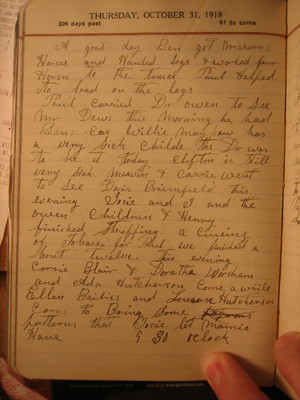 THURSDAY, OCTOBER 31, 1918
304 days past 61 to come
A good day Ben got Marvins
Horses and Hauled logs & worked four
Horses to the truck Paul Helped
to load on the logs
Paul carried Dr owen to See
Mr Dews this Morning he had
Bens Car Willie Mayhow has
a very Sick Childe the Dr was
to See it today Clifton is Still
very Sick Marvin & Carrie went
to See Doris Brimfield this
evening Josie and I and the
owen Children & Henny
finished Stripping a Cureing
of Tobacco for Paul we finished a
bout twelve this evening
Corrie Blair & Doratha Worsham
and Ada Hutcherson Come a while
Ellen Bailies and Hutcherson
Come To Bring Some
patterns that Osie let Mamie
Have 9 30 oclock